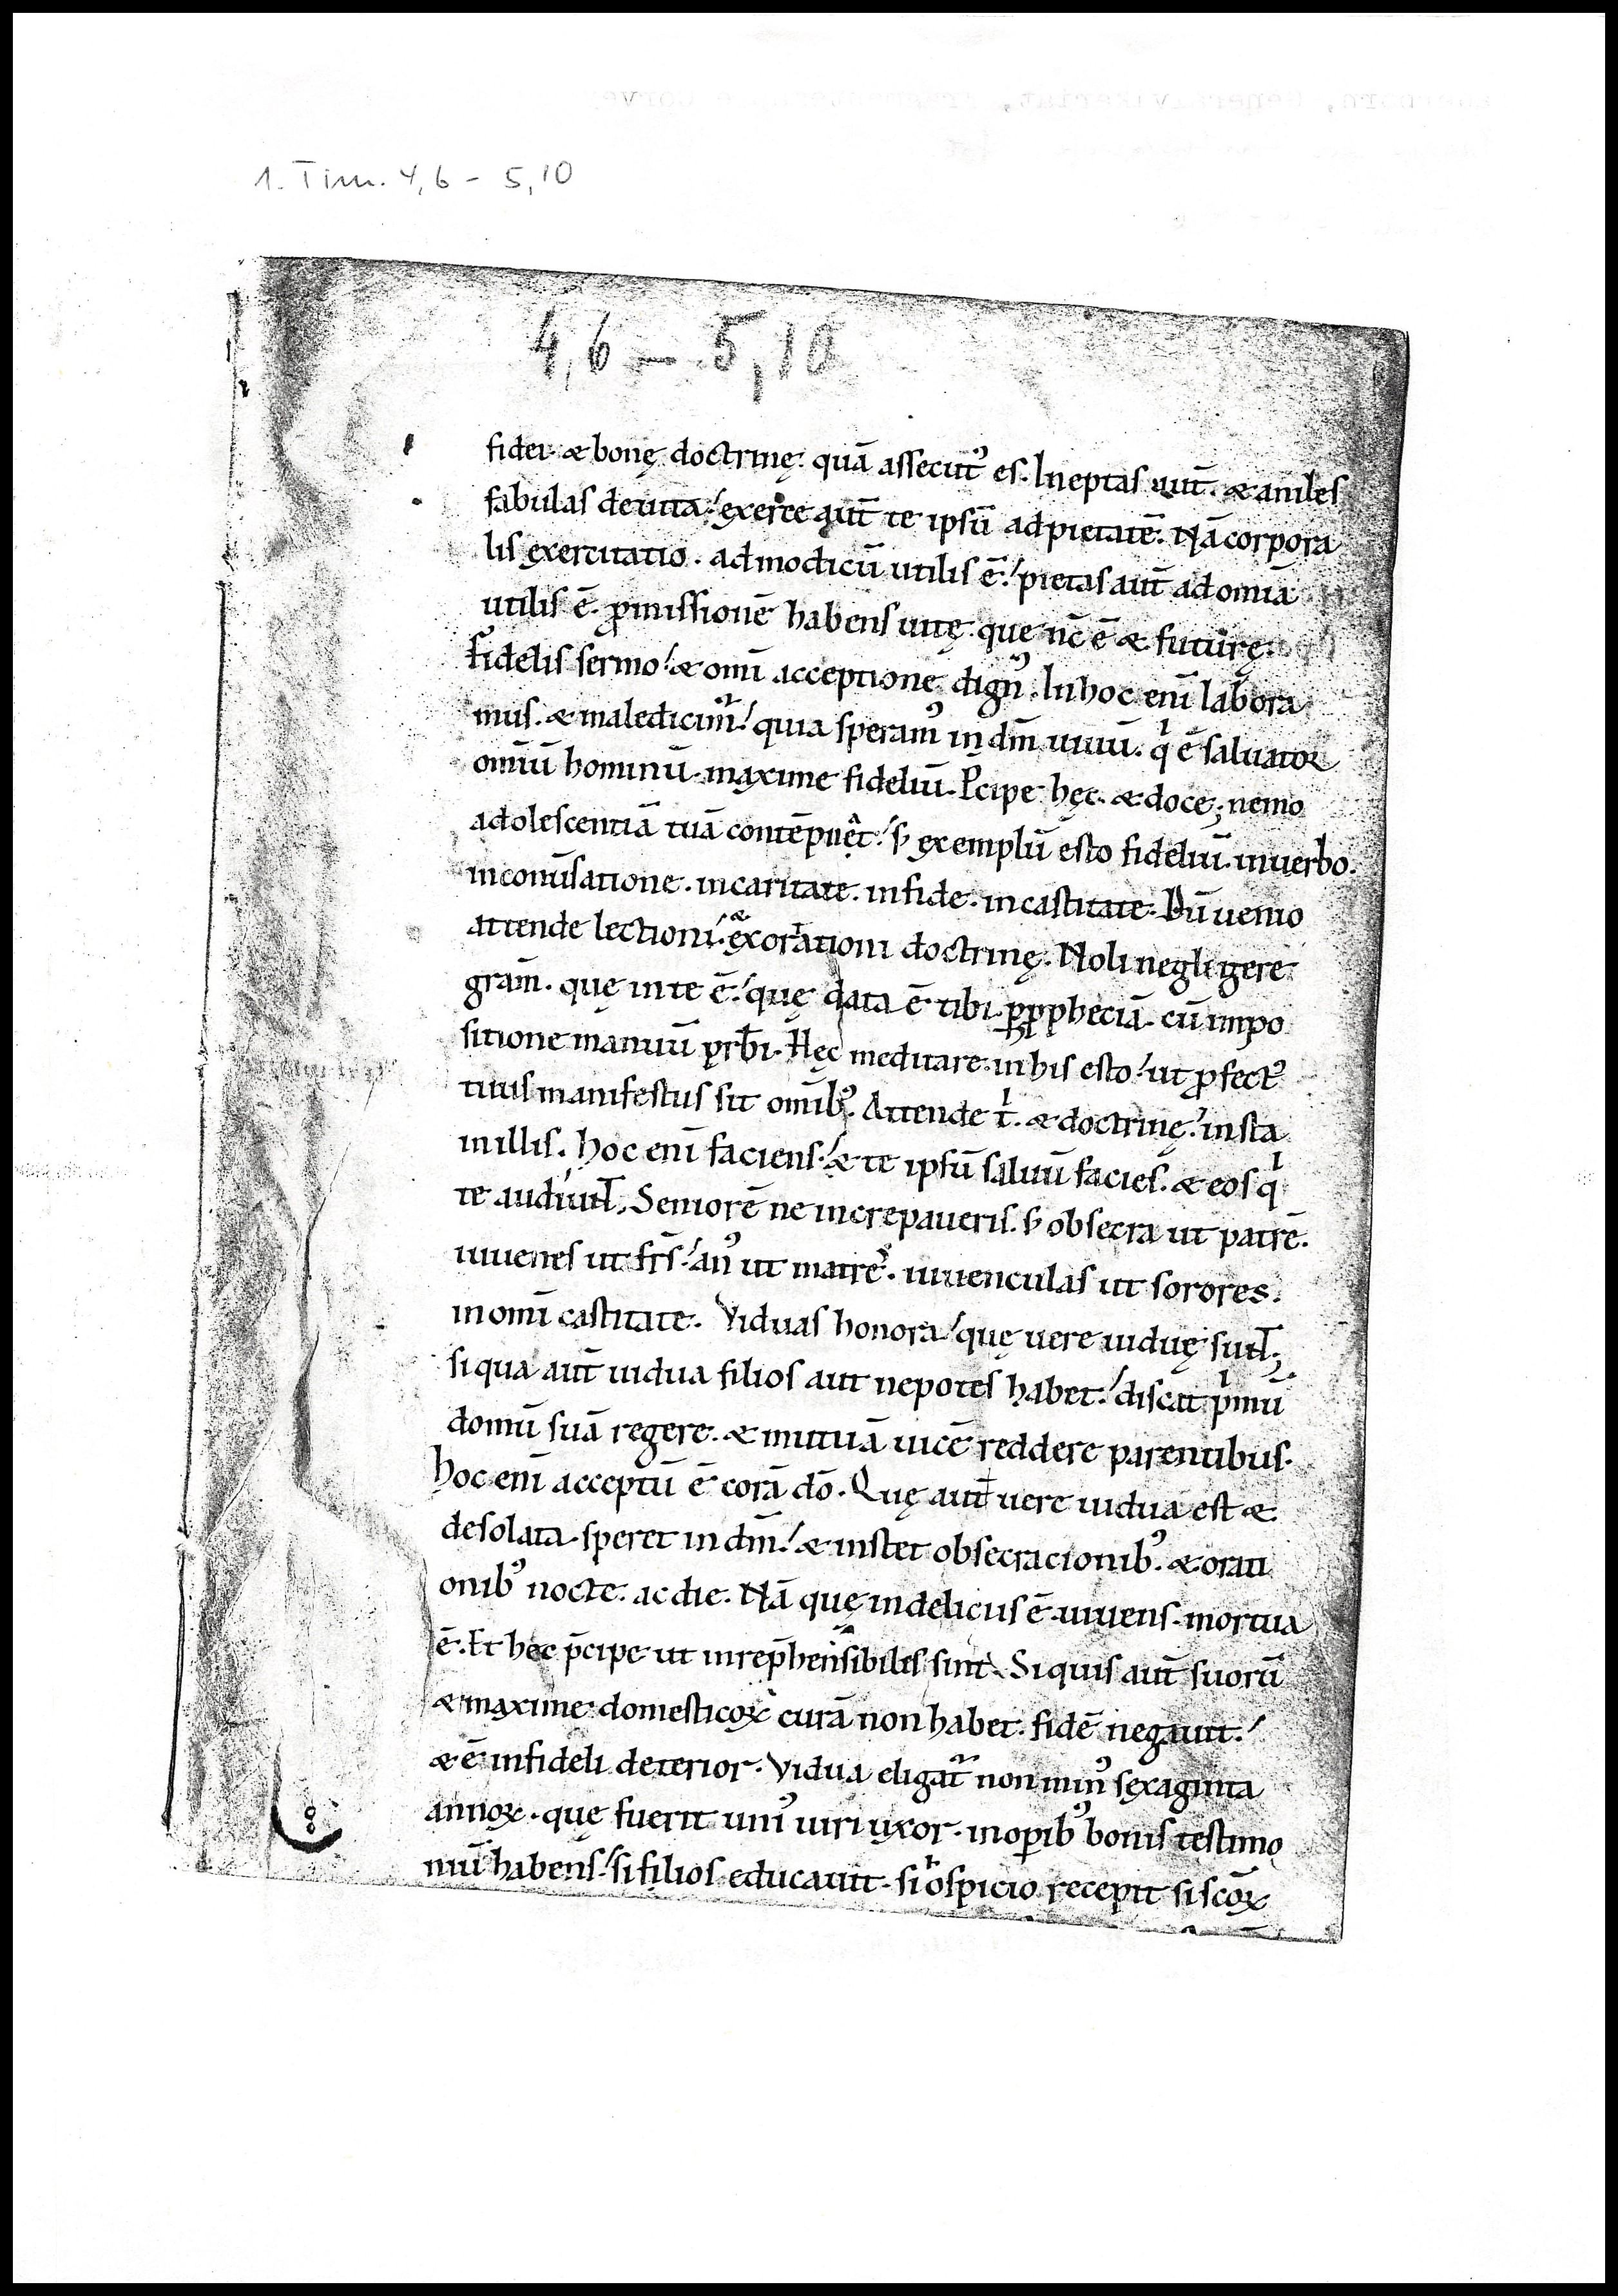 1. Tim. 4,6 - 5,10
4,6 — 5,10
fidei· & bonę doctrinę· quā assecut᾽ es. Ineptas aut̄· & aniles
fabulas deuita/ exerce aut̄ te ipsū ad pietatē. Nā corpora
lis exercitatio· ad modicū utilis ē·/ pietas aut̄ ad omīa
utilis ē· ꝓmissionē habens uitę· quę nc̄ ē & futurę·
Fidelis sermo/ & omī acceptione dign᾽. In hoc enī labora
mus· & maledicim̄·/ quia speram᾽ in dm̄ uiuū· qⁱ ē saluator
omīū hominū· maxime fideliū. P̄cipe hęc· & doce; nemo
adolescentiā tuā contēpnet/ ꝭ exemplū esto fideliū· in uerbo·
in conūsatione· in caritate· in fide· in castitate. Dū uenio
attende lectioni/ exorationi doctrinę. Noli negligere
gram̄· quę in te ē·/ quę data ē tibi ꝑ ꝓpheciā· cū impo
sitione manuū p̄rbi. Hęc meditare· in his esto/ ut ꝓfect᾽
tuus manifestus sit omīb᾽. Attende tⁱ· & doctrinę·/ insta
in illis. hoc enī faciens/ & te ipsū saluū facies· & eos qⁱ
te audiunt̄. Seniorē ne increpaueris· ꝭ obsecra ut patrē.
iuuenes ut frs̄/ an᾽ ut matrē· iuuenculas ut sorores.
in omī castitate. Viduas honora/ quę uere uiduę sunt;
si qua aut̄ uidua filios aut nepotes habet·/ discat pⁱmū
domū suā regere· & mutuā uicē reddere parentibus·
hoc enī acceptū ē corā dō. Quę aut̄ uere uidua est &
desolata· speret in dm̄/ & instet obsecracionib᾽· & orati
onib᾽ nocte· ac die. Nā quę in deliciis ē· uiuens· mortua
ē. Et hęc p̄cipe ut inrep̄hensibiles sint. Si quis aut̄ suorū
& maxime domesticoꝝ curā non habet· fidē negauit·/
& ē infideli deterior. Vidua eligat̄ non min᾽ sexaginta
annoꝝ· quę fuerit uni᾽ uiri uxor· in oꝑib᾽ bonis testimo
niū habens/ si filios educauit· si ospicio recepit si scōꝝ